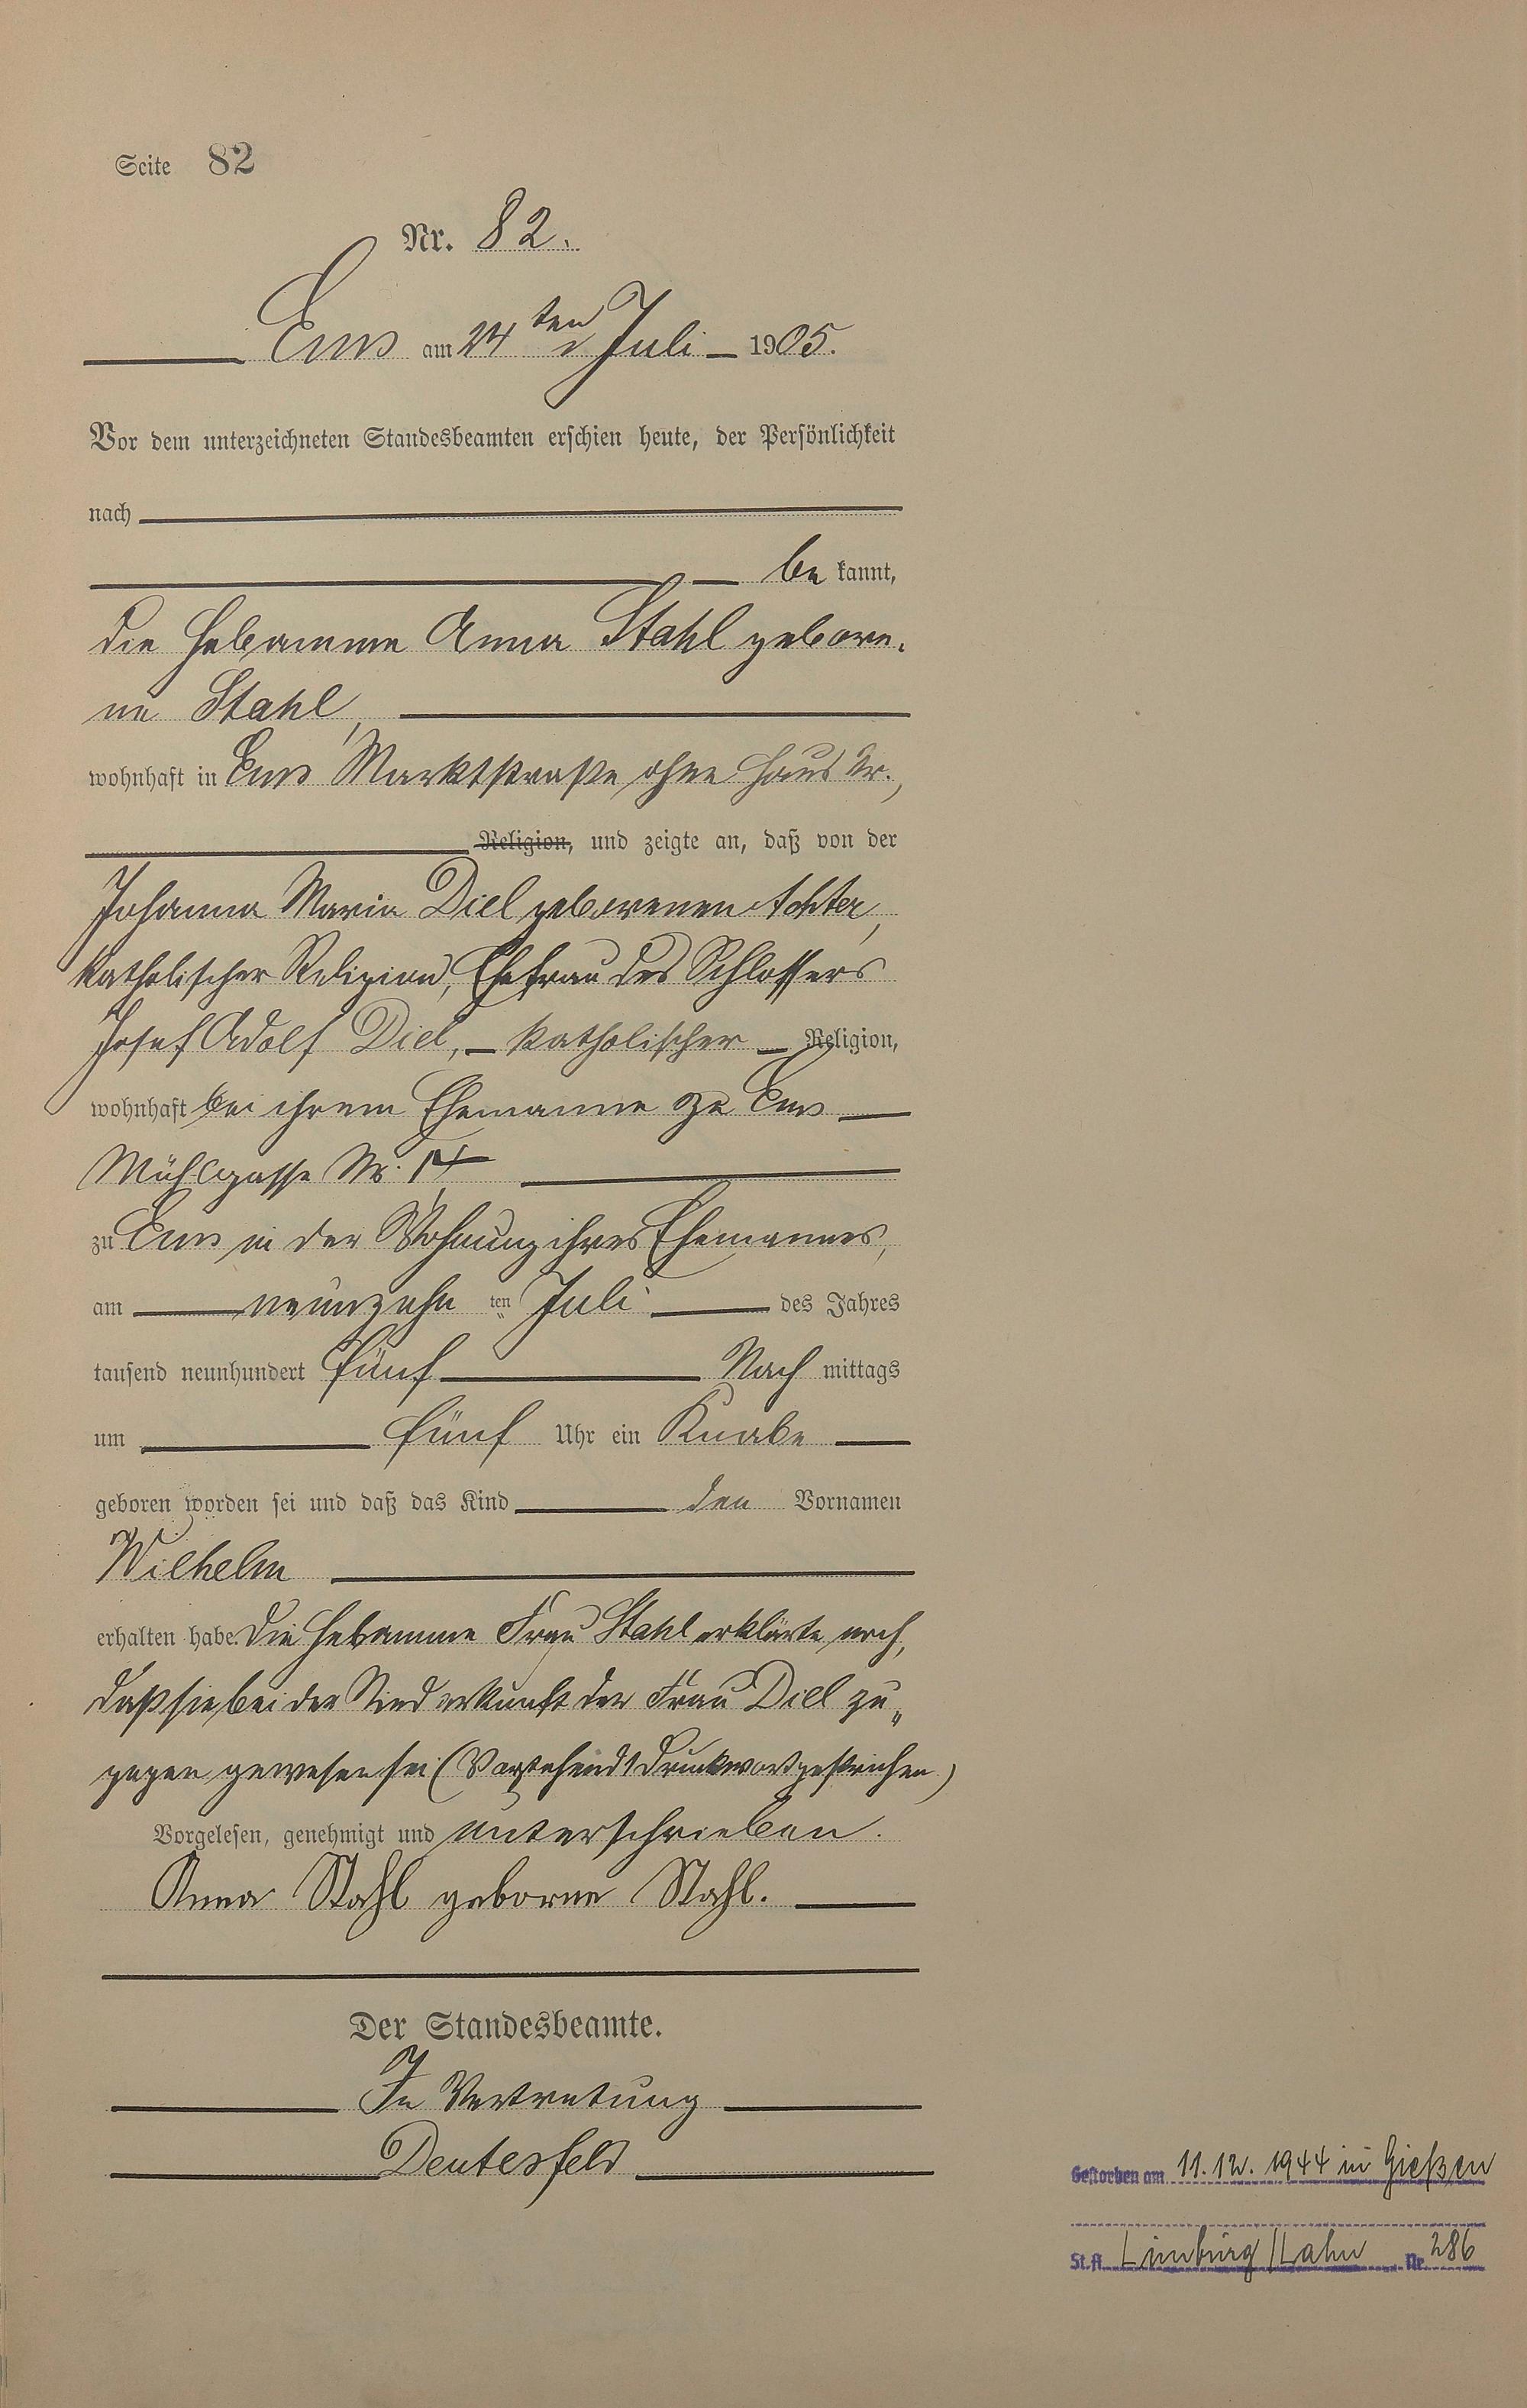 Seite 82
Nr. 82.
Ems am 24ten Juli 1905.
Vor dem unterzeichneten Standesbeamten erschien heute, der Persönlichkeit
nach
be kannt,
die Hebamme Anna Stahl gebore-
ne Stahl,
wohnhaft in Ems Marktstraße ohne Haus Nr.,
Religion, und zeigte an, daß von der
Johanna Maria Diel geborenen
katholischer Religion, Ehefrau des Schlossers
Josef Adolf Diel, katholischer Religion,
wohnhaft bei ihrem Ehemanne zu Ems
Mühlgasse Nr. 14
zu Ems in der Wohnung ihres Ehemannes,
am neunzehn ten Juli des Jahres
tausend neunhundert fünf Nach mittags
um fünf Uhr ein Knabe
geboren worden sei und daß das Kind den Vornamen
Wilhelm
erhalten habe. Die Hebamme Frau Stahl erklärte noch,
daß sie bei der Niederkunft der Frau Diel zu„
gegen gewesen sei (Vorstehend 1 Druckwort gestrichen.)
Vorgelesen, genehmigt und unterschrieben.
Anna Stahl geborne Stahl.
Der Standesbeamte.
In Vertretung
Deutesfeld
Gestorben am 11.12.1944 in Gießen
St.A. Limburg/Lahn Nr. 286